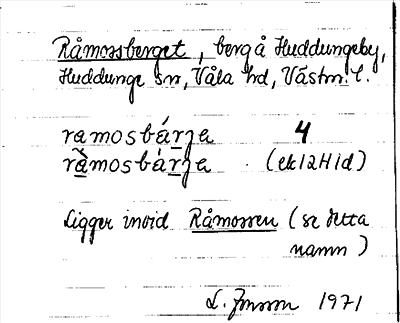 Råmossberget, berg å Huddungeby,
Huddunge sn, Våla hd, Västm. l.
ramosbárja 4
råmosbárja (ek 12H1d)
Ligger invid Råmossen (se detta
namn)
L. Jonsson 1971